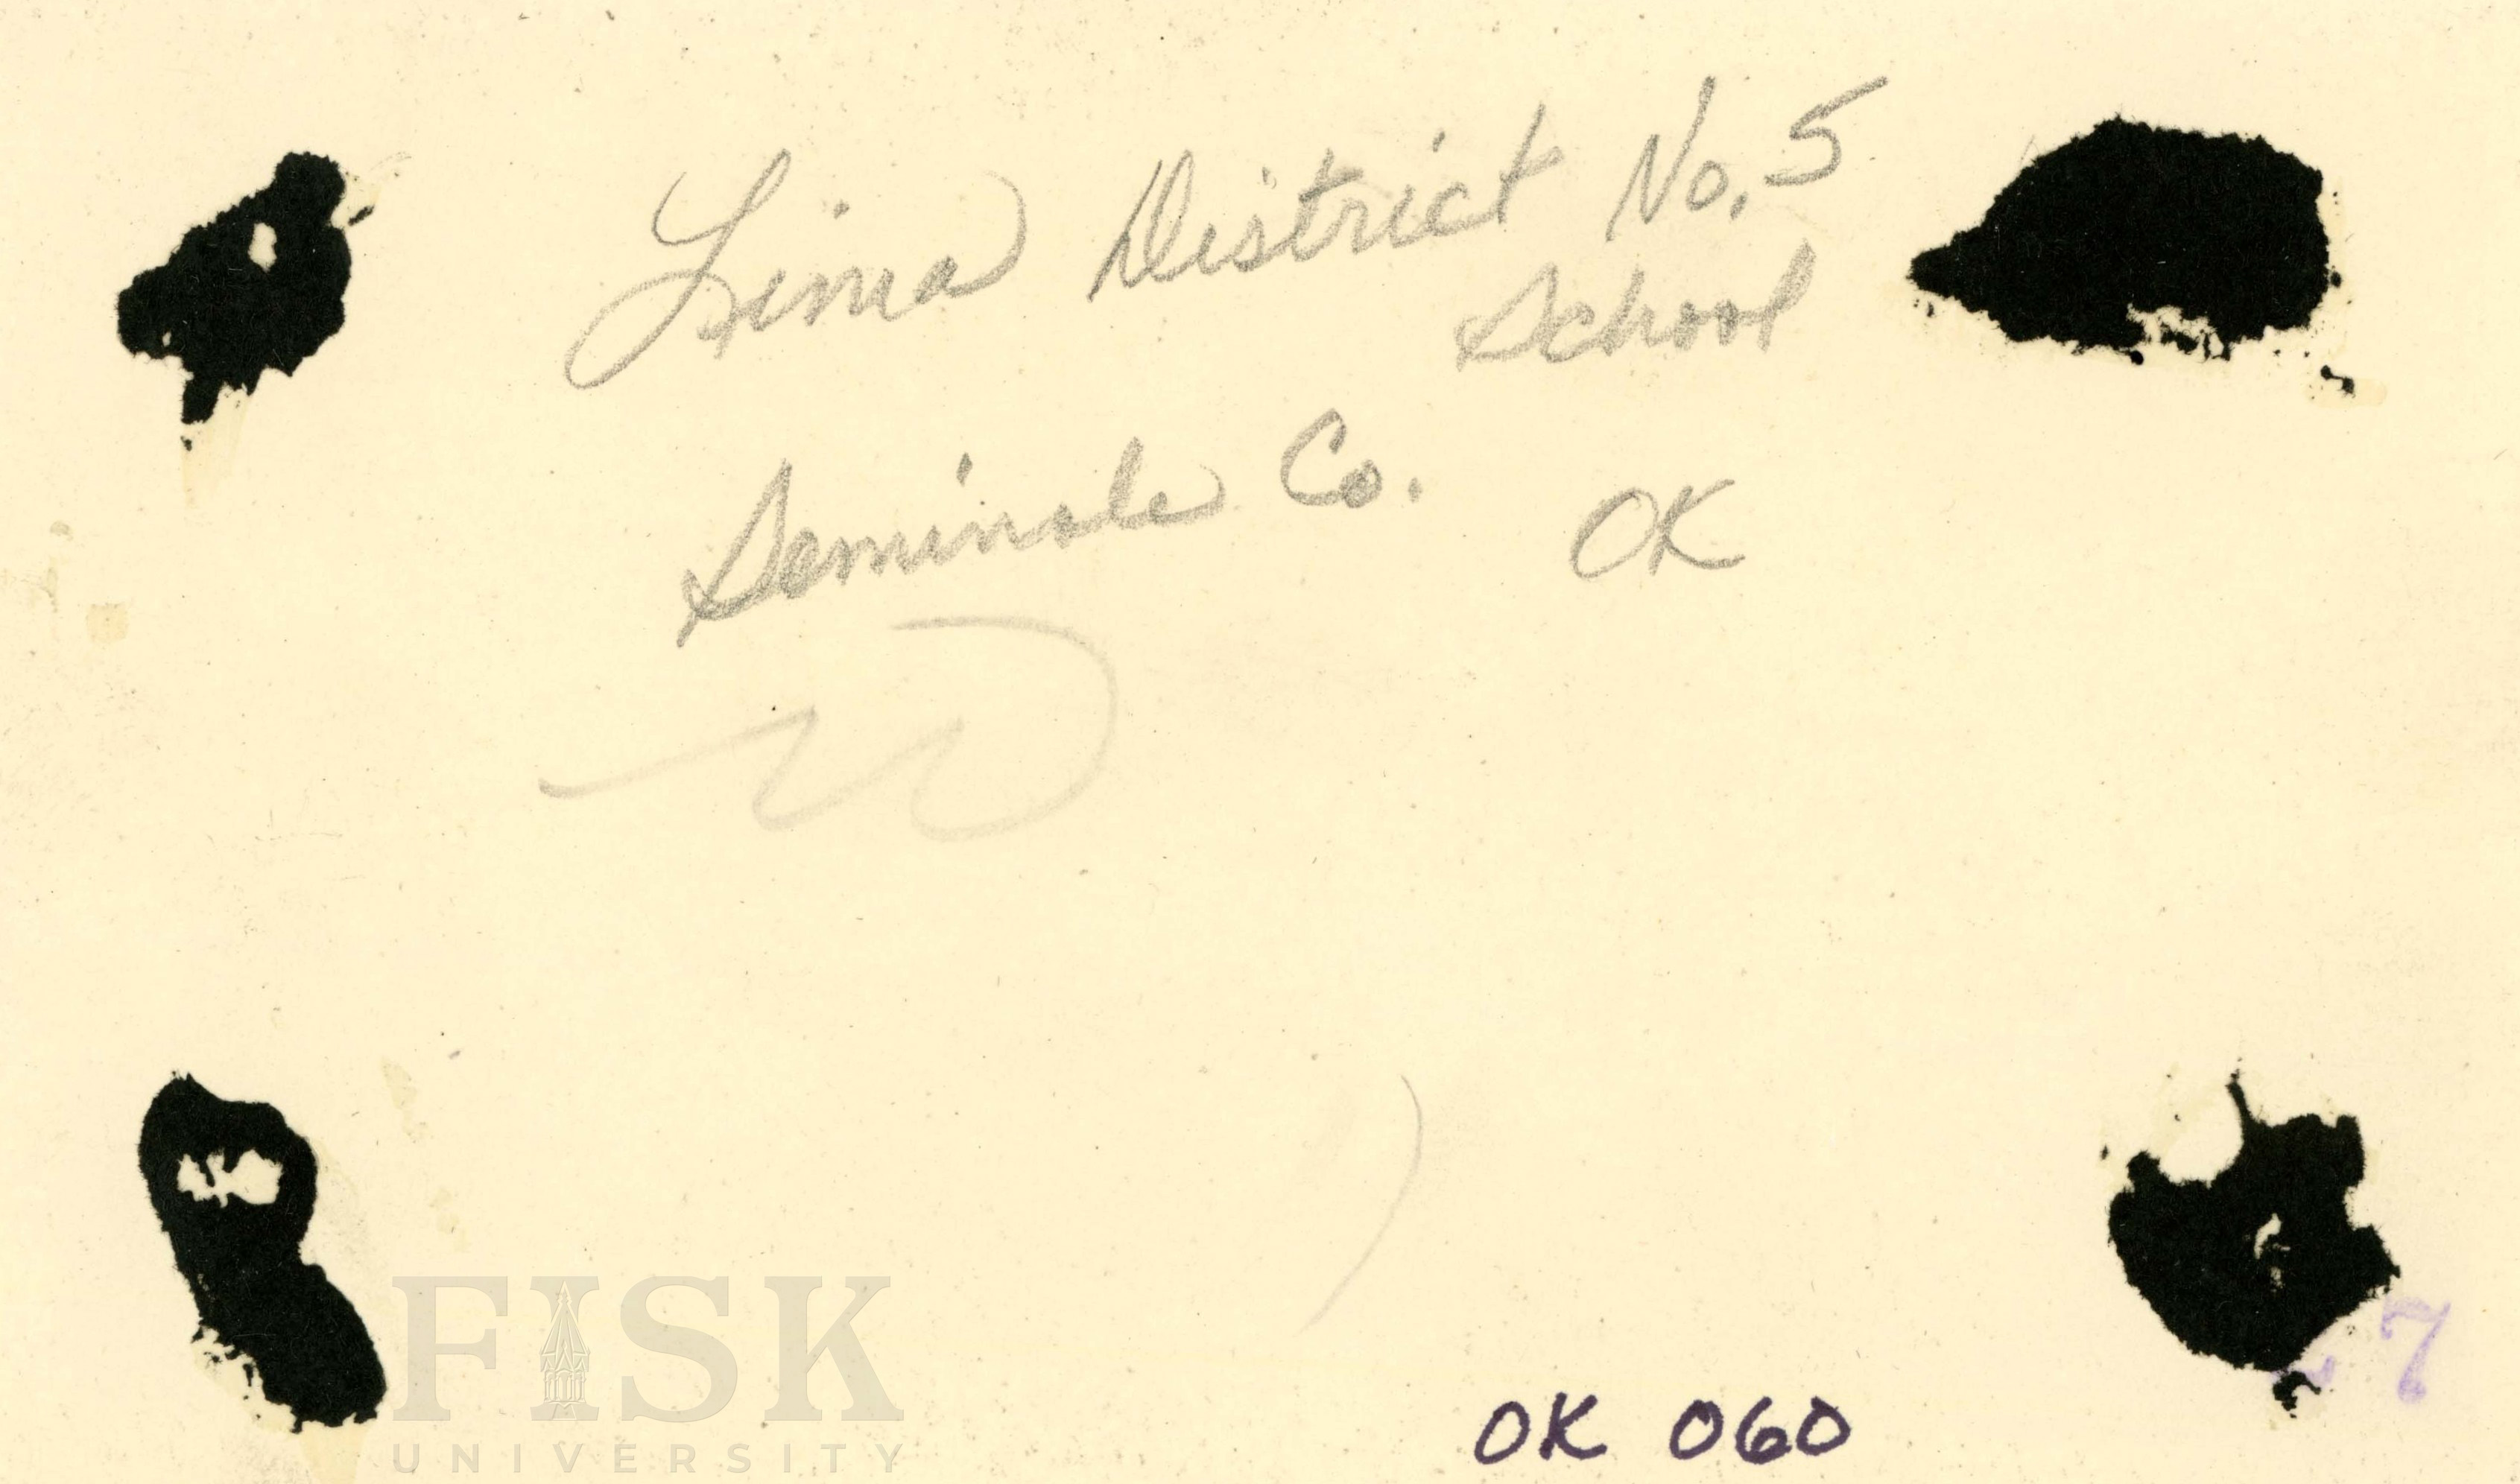 Lima District No. 5
School
Seminole Co. OK
OK 060
7
FISK
UNIVERSITY